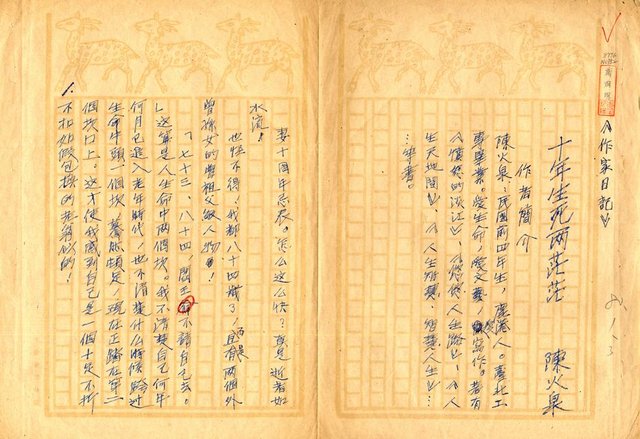 《作家日記》
十年生死兩茫茫 陳火泉
作者簡介
陳火泉:民國前四年生,鹿港人。臺北工
專畢業。愛生命,愛文藝,愛寫作。著有
《憤怒的淡江》、《悠悠人生路》、《人
生天地間》、《人生短歌》、人生》
…等書。
妻十周年忌辰。怎么這么快?真是逝者如
水流!
也怪不得,我都八十四歲了,且有兩個外
曾孫女的曾祖父級人物!
「七十三、八十四,閻王不請自己去。
」這算是人生命中兩個坎。我不清楚自己何年
何月已進入老年時代,也不清楚什么時候輪過
生命中頭一個坎,驀然頓足,現在正躋在第二
個坎口上。這才使我感到自己是一個十足不折
不扣如假包換的老爺似的!
1.